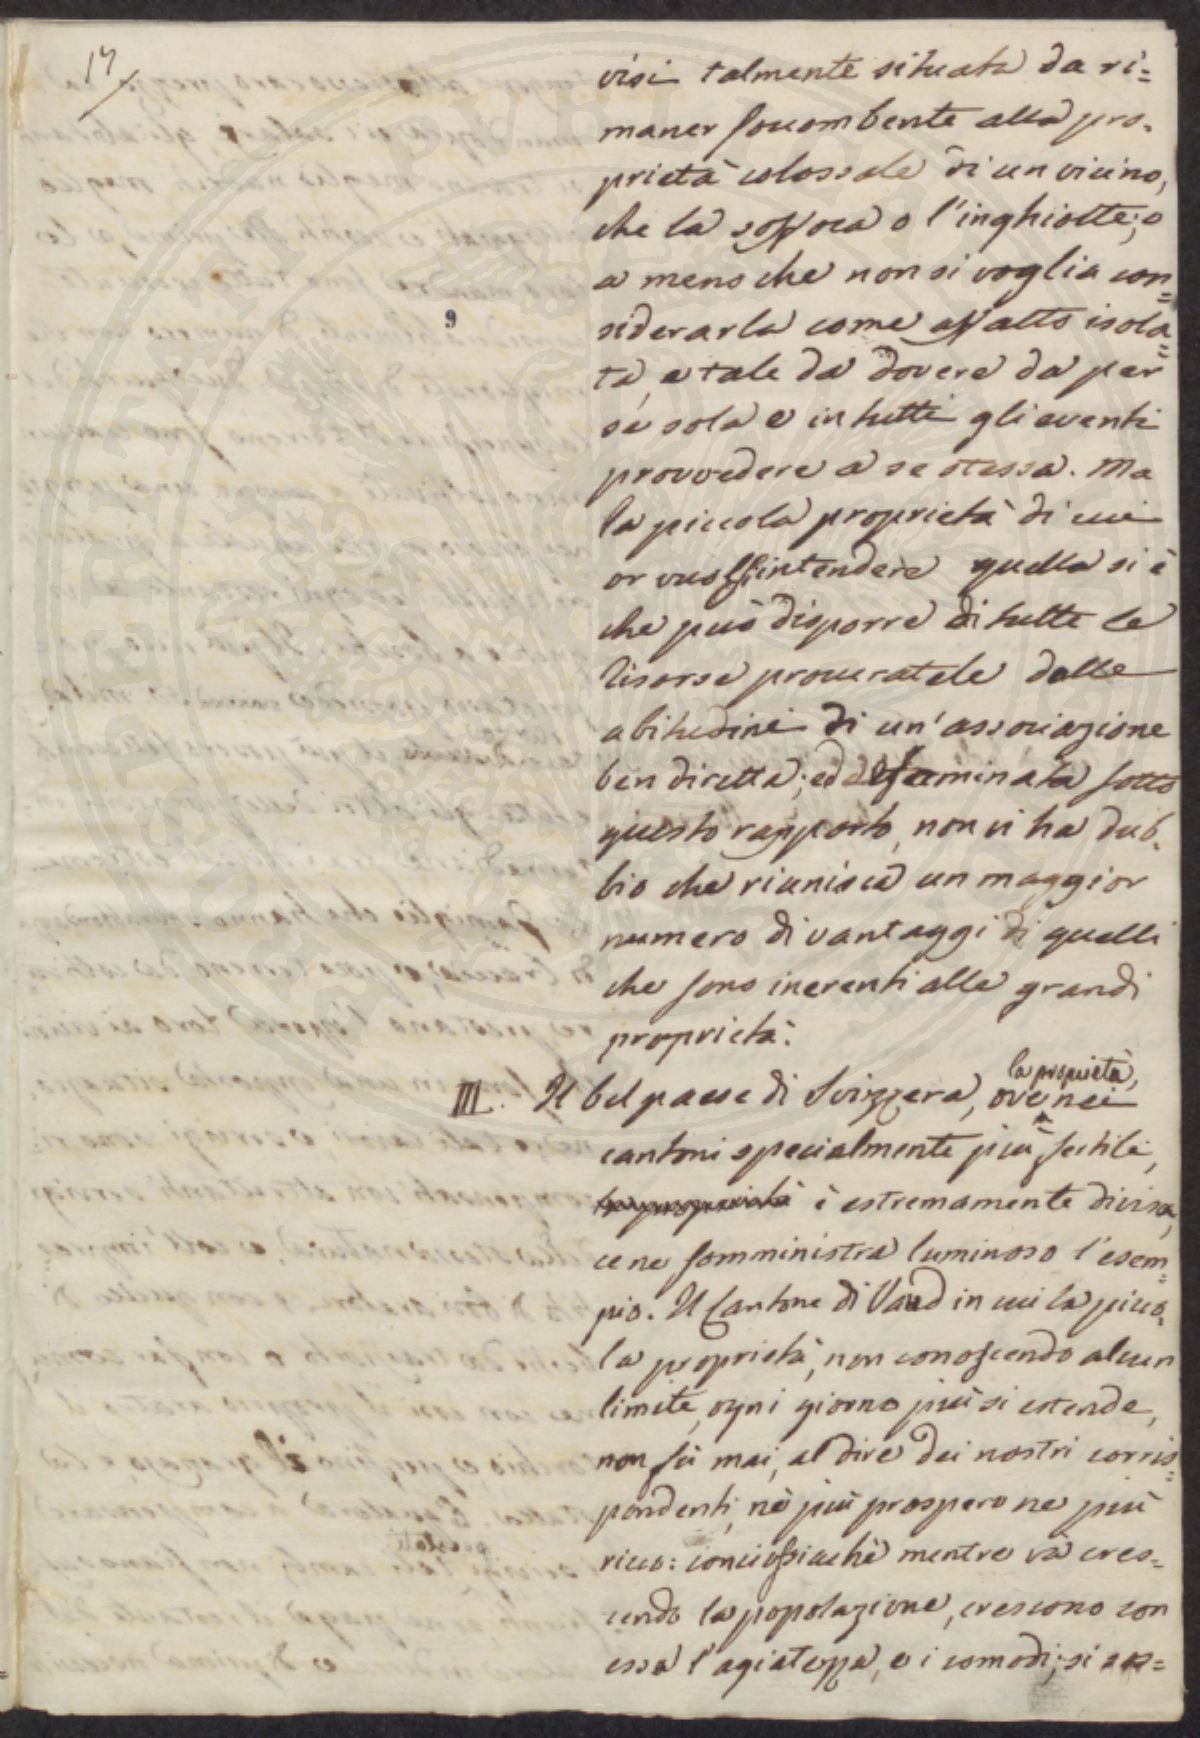 17
visi talmente situata da ri=
maner soccombente alla pro-
prietà colossale di un vicino,
che la soffoca o l'inghiotte; o
a meno che non si voglia con=
siderarla come affatto isola=
ta, e tale da dovere da per
sé sola e in tutti gli eventi
provvedere a se stessa. Ma
la piccola proprietà di cui
or vuolsi intendere quella si è
che può disporre di tutte le
risorse procuratele dalle
abitudini di un'associazione
ben diretta; ed esaminata sotto
questo rapporto, non vi ha dub-
bio che riunisca un maggior
numero di vantaggi di quelli
che sono inerenti alle grandi
proprietà.
la proprietà,
III. Il bel paese di Svizzera, ove nei
cantoni specialmente più fertili,
la proprietà è estremamente divisa,
ce ne somministra luminoso l'esem=
pio. Il Cantone di Vaud in cui la picco-
la proprietà, non conoscendo alcun
limite, ogni giorno più si estende,
non fù mai, al dire dei nostri corris=
pondenti, nè più prospero ne più
ricco: conciossiachè mentre và cres=
cendo la popolazione, crescono con
essa l'agiatezza, e i comodi; si
9